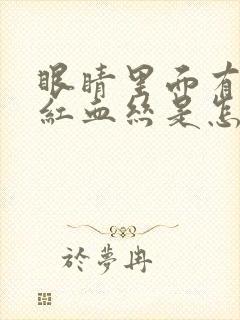 眼睛里面有
红血丝是怎
於夢冉